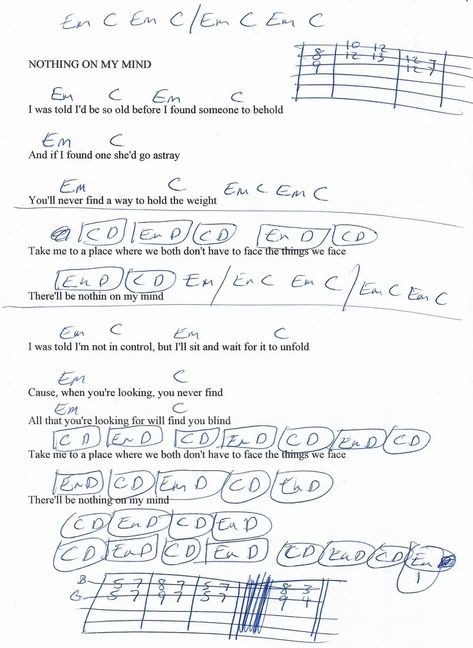 Em C Em C / Em C Em C
10 12
8 12 13 12 7
9 12 7
NOTHING ON MY MIND
Em C Em C
I was told I'd be so old before I found someone to behold
Em C
And if I found one she'd go astray
Em C Em C Em C
You'll never find a way to hold the weight
C D Em D C D Em D C D
Take me to a place where we both don't have to face the things we face
Em D C D Em / Em C Em C / Em C Em C
There'll be nothin on my mind
Em C Em C
I was told I'm not in control, but I'll sit and wait for it to unfold
Em C
Cause, when you're looking, you never find
Em C
All that you're looking for will find you blind
C D Em D C D Em D C D Em D C D
Take me to a place where we both don't have to face the things we face
Em D C D Em D C D Em D
There'll be nothing on my mind
C D Em D C D Em D
C D Em D C D Em D C D Em D C D Em
1
B 5 7 8 7 5 7 8 3
G 5 7 9 7 5 7 9 4